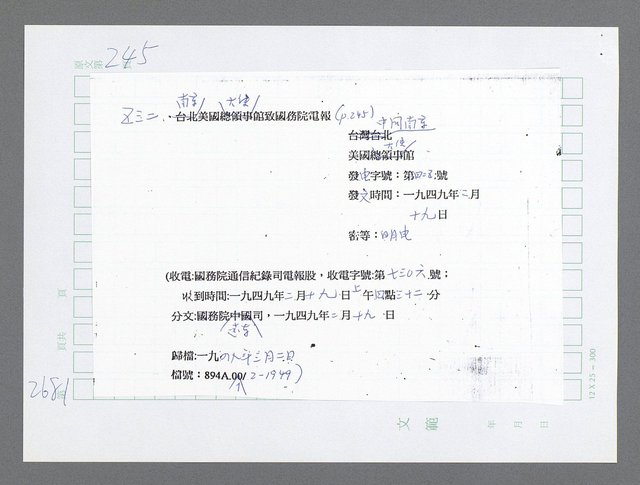 245
原文第
南京 大使
五三二、台北美國總領事館致國務院電報 (p.245)
中國南京
台灣台北
大使
美國總領事館
發電字號：第四二五號
發文時間：一九四九年二月
十九日
密等：明电
(收電:國務院通信紀錄司電報股，收電字號:第七三〇六號；
收到時間:一九四九年二月十九日上午四點三十二分
分文:國務院中國司，一九四九年二月十九日
遠東
歸檔:一九四九年三月二日
檔號：894A.00/2-1949)
頁
頁共
2681
第
文範
年 月 日
12 X 25 — 300